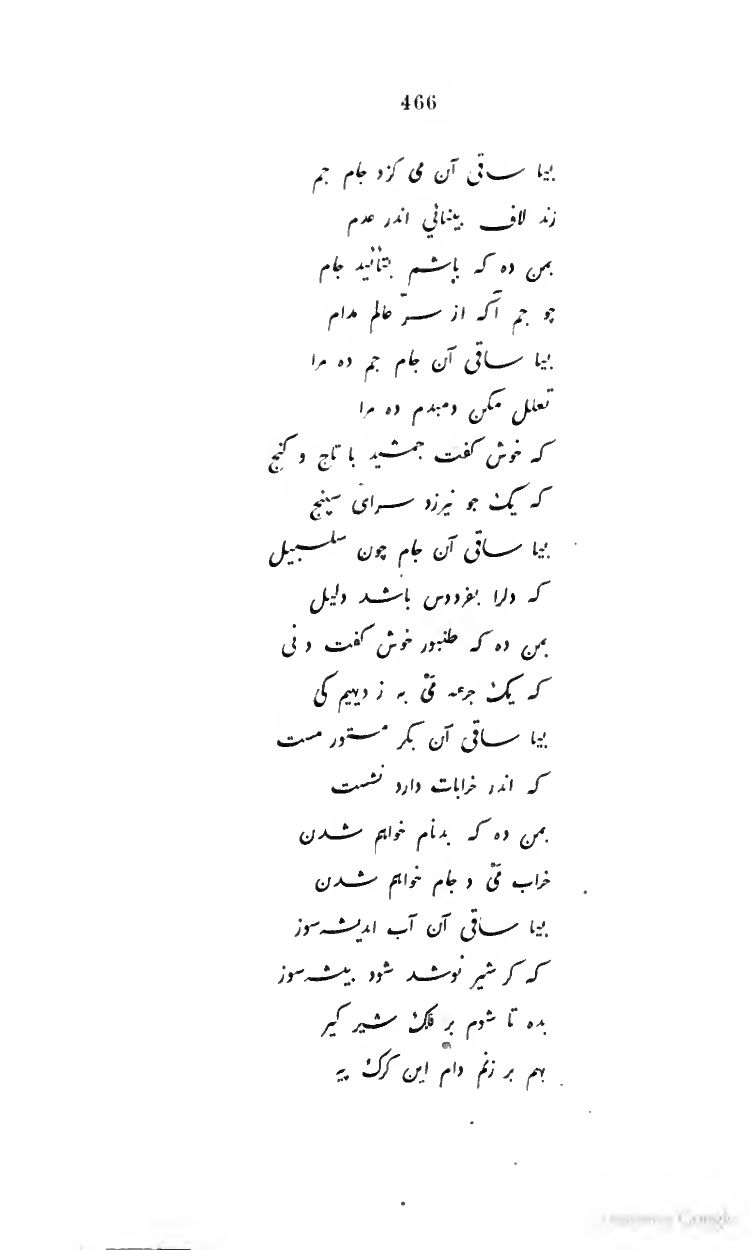 466
بیا ساقی آن می کزو جام جم
زند لاف بینائی اندر عدم
بمن ده که باشم بتائید جام
چو جم آگه از سرّ عالم مدام
بیا ساقی آن جام جم ده مرا
تعلل مکن دمبدم ده مرا
که خوش گفت جمشید با تاج و گنج
که یک جو نیرزد سرای سپنج
بیا ساقی آن جام چون سلسبیل
که دلرا بفردوس باشد دلیل
بمن ده که طنبور خوش گفت و نی
که یک جرعه می به ز دیهیم کی
بیا ساقی آن بکر مستور مست
که اندر خرابات دارد نشست
بمن ده که بدنام خواهم شدن
خراب می و جام خواهم شدن
بیا ساقی آن آب اندیشه‌سوز
که کر شیر نوشد شود بیشه‌سوز
بده تا شوم بر فلک شیر کیر
بهم بر زنم دام این کرک پیر
Google